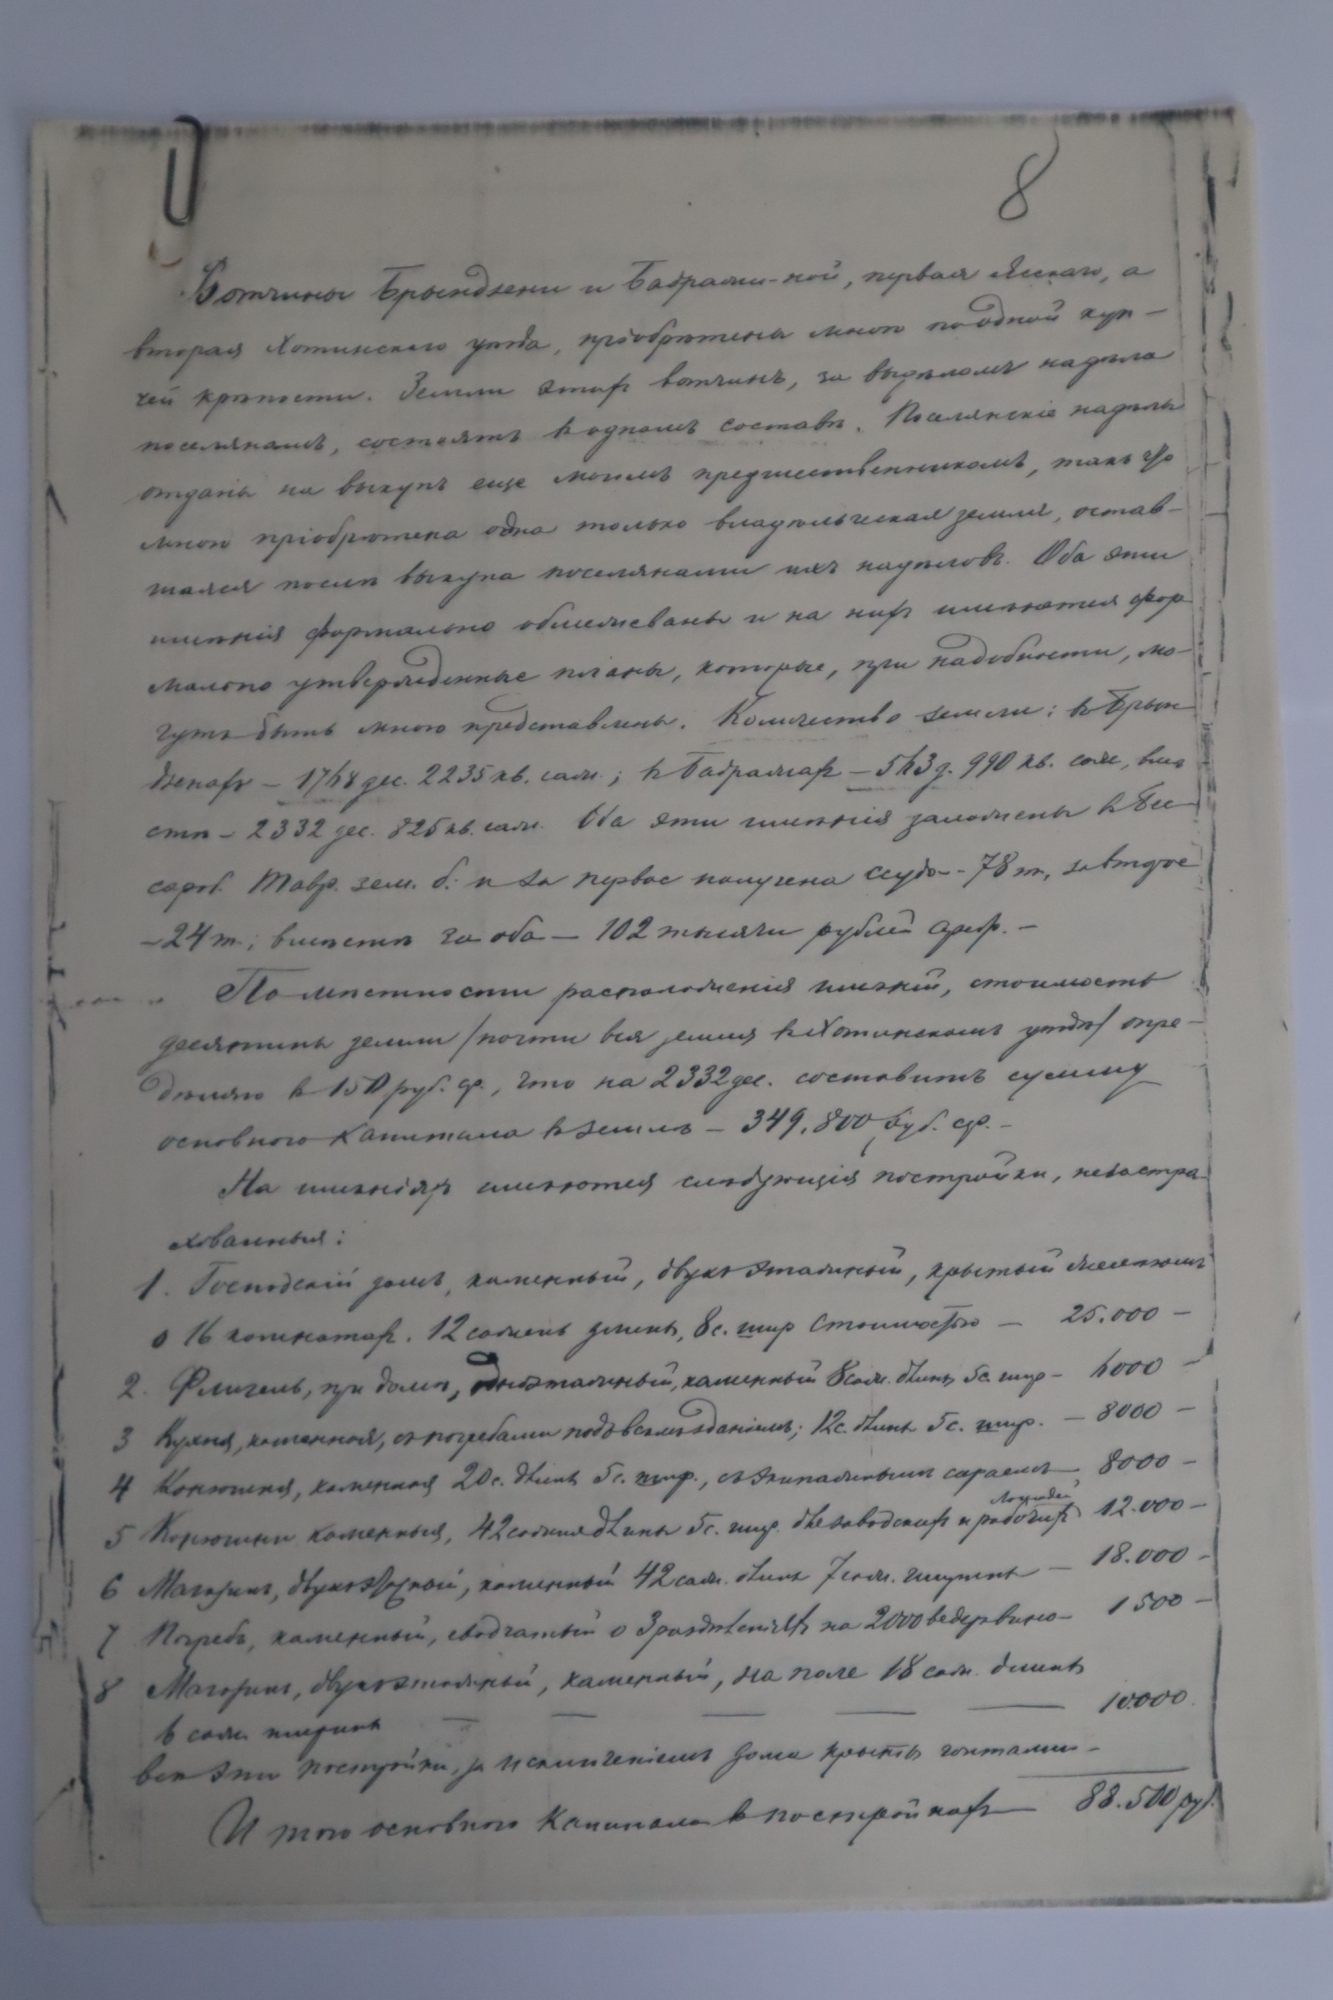 8
Вотчины Брындзени и Бадражи-ной, первая Ясскаго, а
вторая Хотинскаго уѣзда, пріобрѣтены мною по одной куп-
чей крѣпости. Земли этихъ вотчинъ, за выдѣломъ надѣла
поселянамъ, состоятъ въ одномъ составѣ. Поселянскіе надѣлы
отданы на выкупъ еще моимъ предшественникомъ, такъ что
мною пріобрѣтена одна только владѣльческая земля, остав-
шаяся послѣ выкупа поселянами ихъ надѣловъ. Оба эти
имѣнія формально обмежеваны и на нихъ имѣются фор
мально утвержденные планы, которые, при надобности, мо-
гутъ быть мною представлены. Количество земли: въ Брын
дзенахъ – 1768 дес. 2235 кв. саж.; въ Бадражахъ – 563 д. 990 кв. саж., вмѣ
стѣ – 2332 дес. 825 кв. саж. Оба эти имѣнія заложены въ Бес
сараб. Тавр. зем. б. и за первое получена ссуда – 78 т., за второе
– 24 т.; вмѣстѣ за оба – 102 тысячи рублей сереб. –
По мѣстности расположенія имѣній, стоимость
десятины земли /почти вся земля въ Хотинскомъ уѣздѣ/ опре-
дѣляю въ 150 руб. ср., что на 2332 дес. составитъ сумму
основного капитала въ землѣ – 349.800 руб. ср. –
На имѣніяхъ имѣются слѣдующія постройки, незастра-
хованныя:
1. Господскій домъ, каменный, двухъ этажный, крытый желѣзомъ
о 16 комнатахъ. 12 сажень длины, 8 с. шир стоимостью – 25.000 –
2. Флигель, при домѣ, одноэтажный, каменный 8 саж. длины 5 с. шир – 6000 –
3 Кухня, каменная, съ погребами подъ всемъ зданіемъ; 12 с. длины 5 с. шир. – 8000 –
4 Конюшня, каменная 20 с. длины 5 с. шир., съ экипажнымъ сараемъ – 8000 –
5 Конюшни каменныя, 42 сажня длины 5 с. шир. для заводскихъ и рабочихъ лошадей 12.000 –
6 Магазинъ, двухъэтажный, каменный 42 саж. длины 7 саж. ширины – 18.000 –
7 Погребъ, каменный, сводчатый о 3 раздѣленіяхъ на 2000 ведеръ вина – 1500 –
8 Магазинъ, двухъэтажный, каменный, на поле 18 саж. длины
6 саж ширины – – – – – 10.000.
Всѣ эти постройки, за исключеніемъ дома крыты гонтами –
И того основного капитала въ постройкахъ – 88.500 руб.